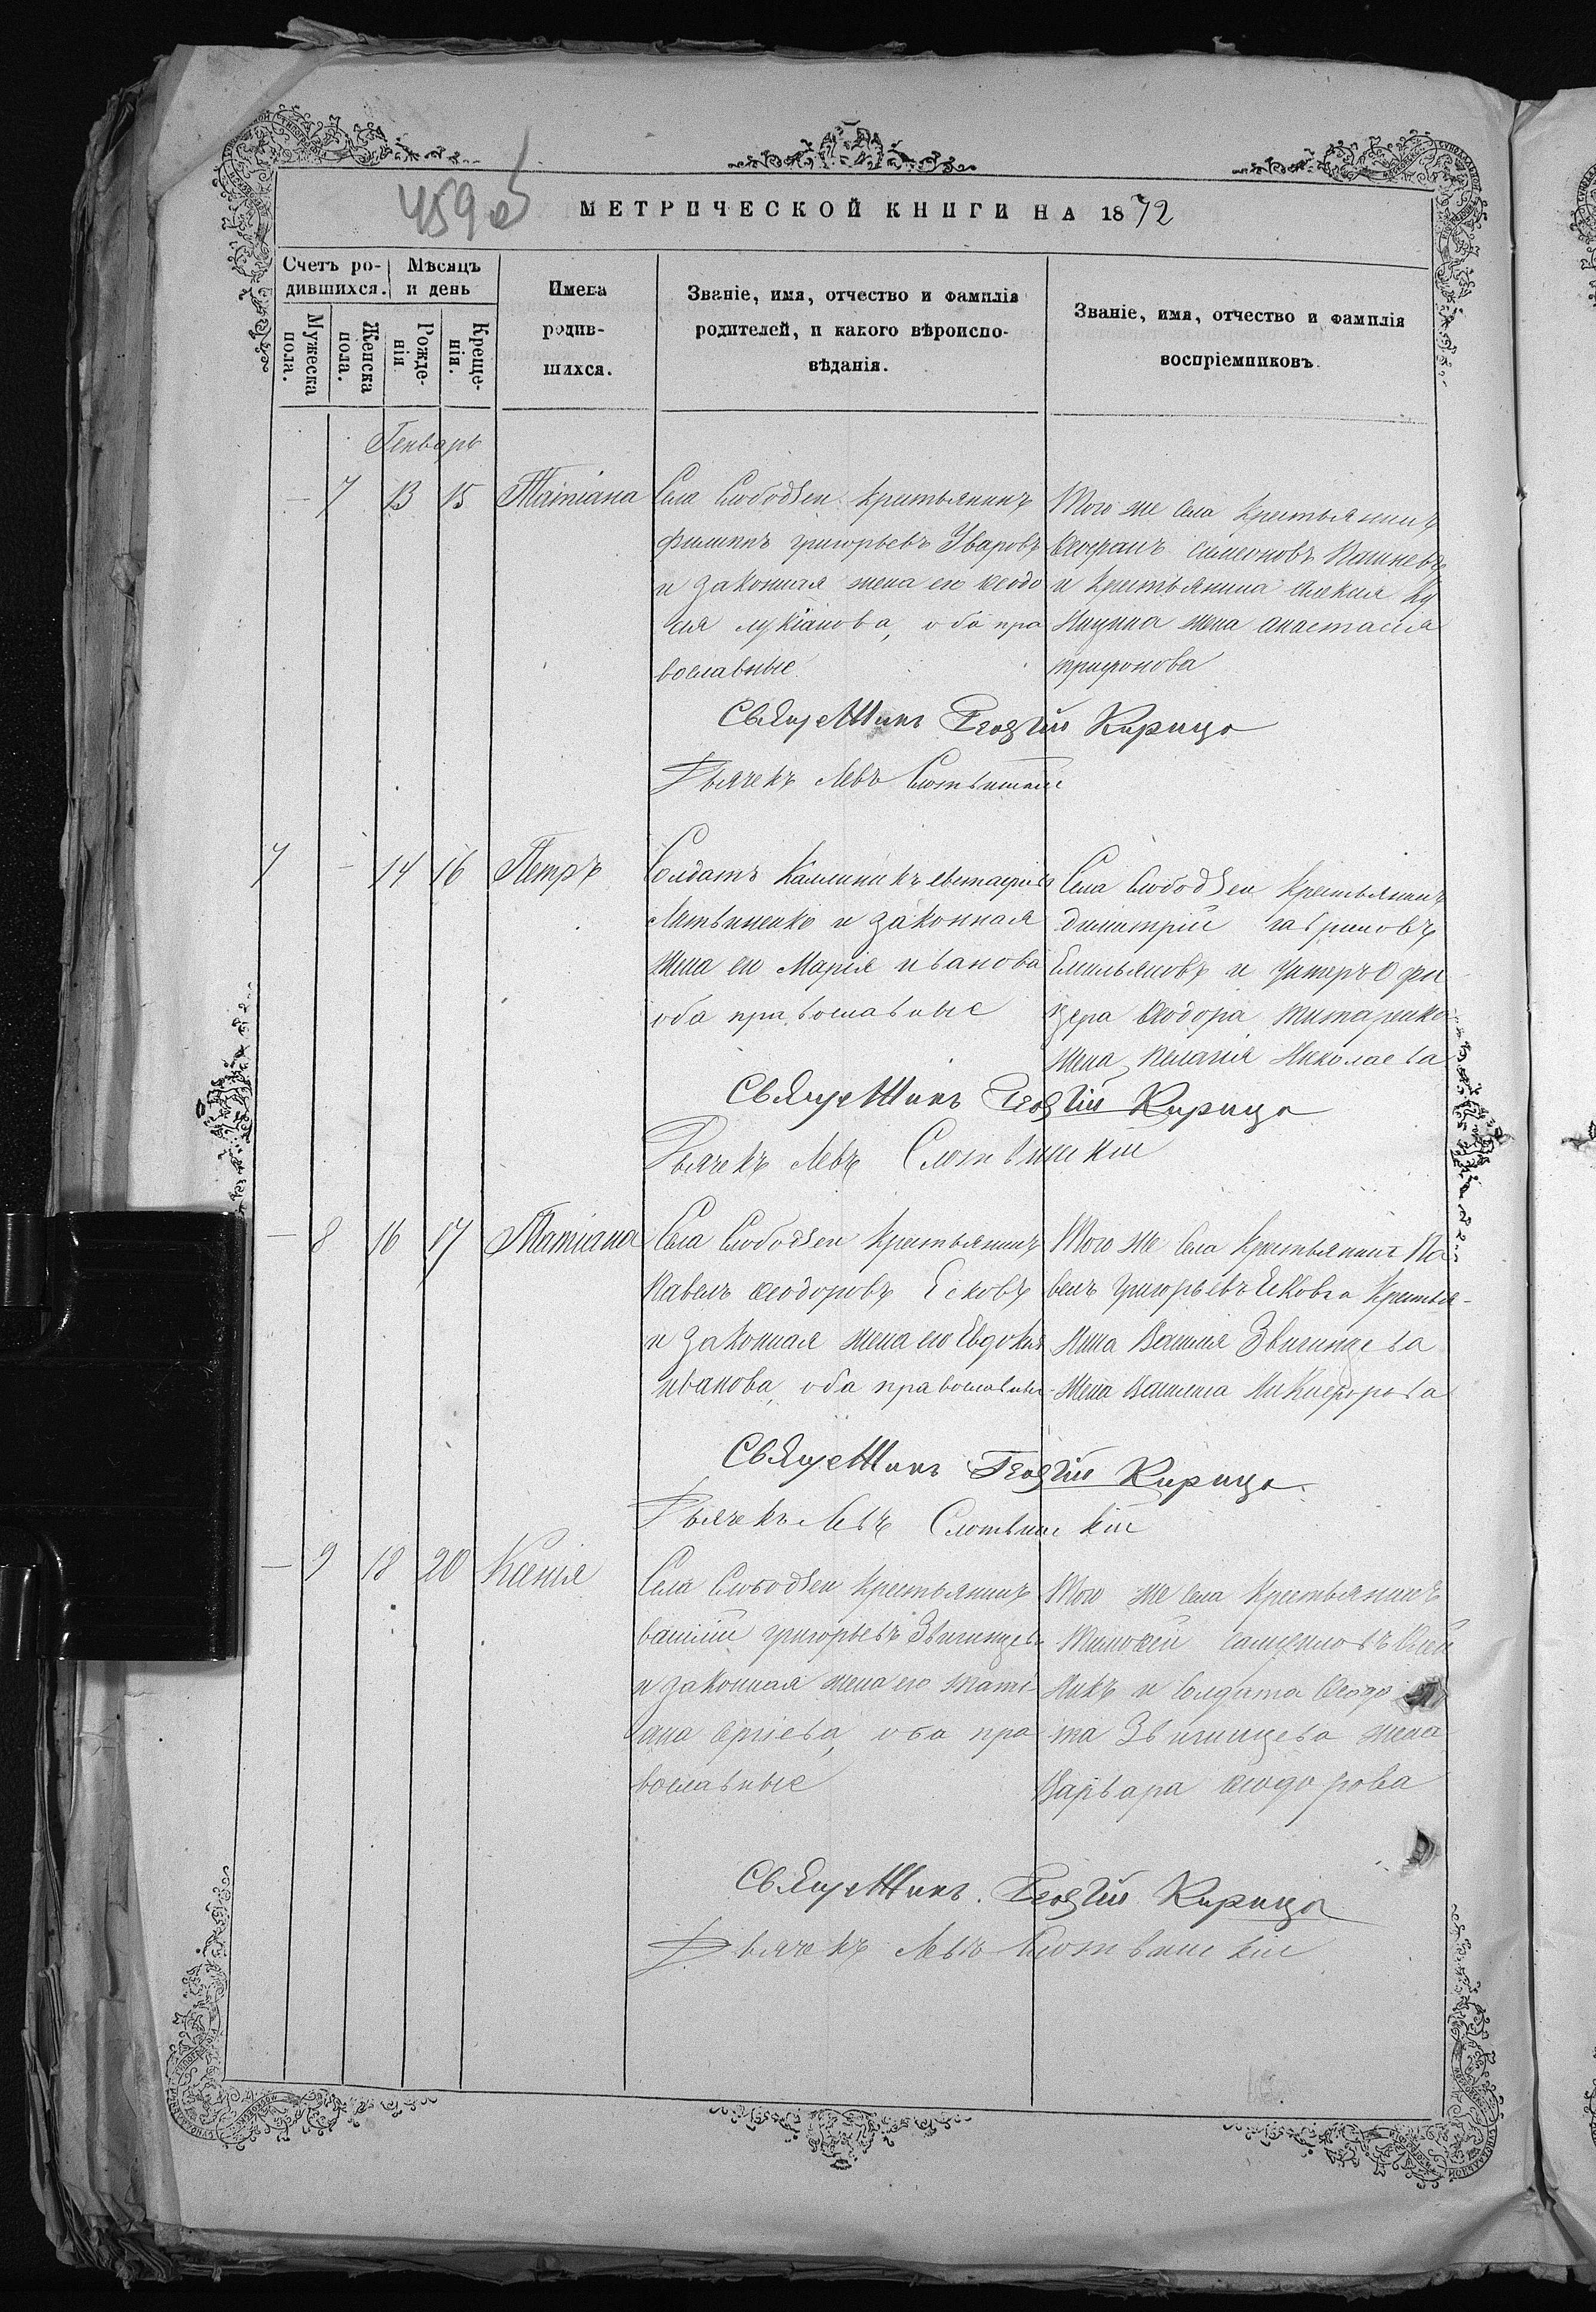 459 об
МЕТРИЧЕСКОЙ КНИГИ НА 1872
Счетъ ро-
дившихся.
Мѣсяцъ
и день
Мужеска
пола.
Женска
пола.
Рожде-
нія
Креще-
нія.
Имена
родив-
шихся.
Званіе, имя, отчество и фамилія
родителей, и какого вѣроиспо-
вѣданія.
Званіе, имя, отчество и фамилія
воспріемниковъ.
Генварь
— 7 13 15 Татіана
Села Слободзеи крестьянинъ
филиппъ григорьевъ Уваровъ
и законная жена его феодо
сія лукіанова, оба пра
вославные
Того же села крестьянинъ
феофанъ симеоновъ
и крестьянина алексія Ку
жена анастасія
трифонова
Священникъ Георгій Кирица
Дьячекъ Левъ Слотвинскій
7 — 14 16 Петръ
Солдатъ Каллиникъ евстафіевъ
Литвиненко и законная
жена его Марія иванова
оба православные
Села Слободзеи крестьянинъ
димитрій гавриловъ
Емельяновъ и унтеръ офи
цера феодора титаренко
жена пелагія Николаева
Священникъ Георгій Кирица
Дьячекъ Левъ Слотвинскій
— 8 16 17 Татіана
Села Слободзеи крестьянинъ
Павелъ феодоровъ Есковъ
и законная жена его Евдокія
иванова, оба православные
Того же села крестьянинъ Па
велъ григорьевъ Есковъ и крестья-
нина Василія Звигинцева
жена Васили́са Никифорова
Священникъ Георгій Кирица
Дьячекъ Левъ Слотвинскій
— 9 18 20 Ксенія
Села Слободзеи крестьянинъ
василій григорьевъ Звигинцевъ
и законная жена его тати-
ана сергіева, оба пра
вославные
Того же села крестьянинъ
Тимофей
никъ и солдата Феодо
та Звигинцева жена
Варвара феодорова
Священникъ Георгій Кирица
Дьячекъ Левъ Слотвинскій